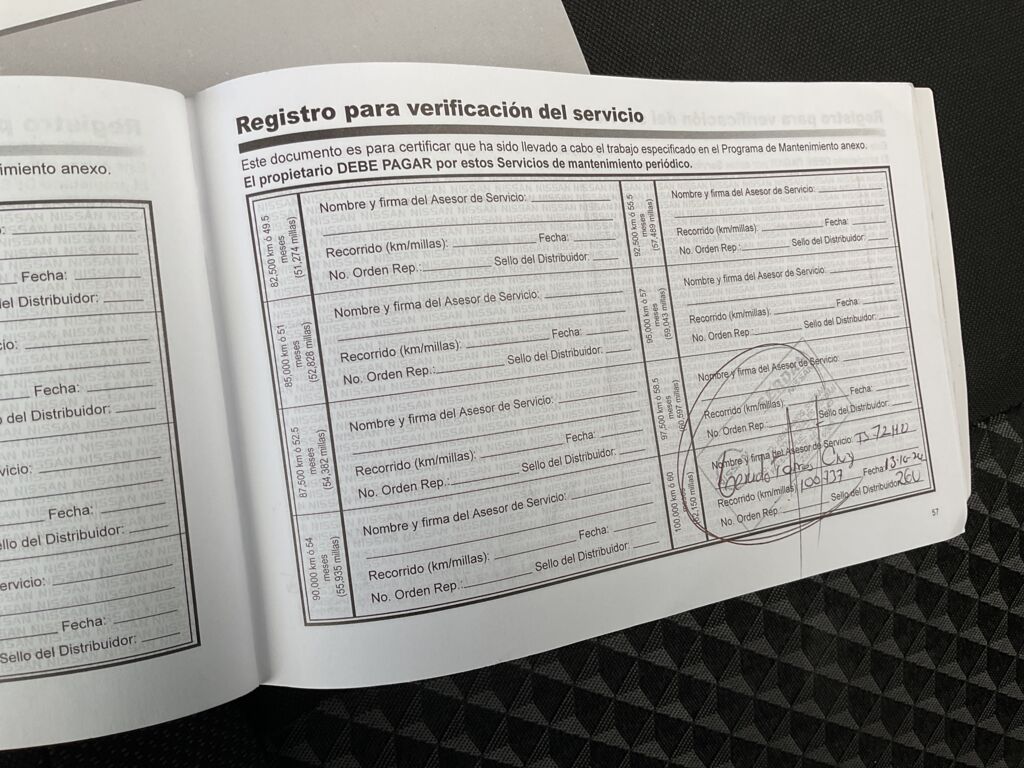 imiento anexo.
Fecha:
el Distribuidor:
cio:
Fecha:
o del Distribuidor:
vicio:
Fecha:
ello del Distribuidor:
ervicio:
Fecha:
Sello del Distribuidor:
Registro para verificación del servicio
Este documento es para certificar que ha sido llevado a cabo el trabajo especificado en el Programa de Mantenimiento anexo.
El propietario DEBE PAGAR por estos Servicios de mantenimiento periódico.
82,500 km ó 49.5
meses
(51,274 millas)
Nombre y firma del Asesor de Servicio:
Recorrido (km/millas): Fecha:
No. Orden Rep.: Sello del Distribuidor:
85,000 km ó 51
meses
(52,828 millas)
Nombre y firma del Asesor de Servicio:
Recorrido (km/millas): Fecha:
No. Orden Rep.: Sello del Distribuidor:
87,500 km ó 52.5
meses
(54,382 millas)
Nombre y firma del Asesor de Servicio:
Recorrido (km/millas): Fecha:
No. Orden Rep.: Sello del Distribuidor:
90,000 km ó 54
meses
(55,935 millas)
Nombre y firma del Asesor de Servicio:
Recorrido (km/millas): Fecha:
No. Orden Rep.: Sello del Distribuidor:
92,500 km ó 55.5
meses
(57,489 millas)
Nombre y firma del Asesor de Servicio:
Recorrido (km/millas): Fecha:
No. Orden Rep.: Sello del Distribuidor:
95,000 km ó 57
meses
(59,043 millas)
Nombre y firma del Asesor de Servicio:
Recorrido (km/millas): Fecha:
No. Orden Rep.: Sello del Distribuidor:
97,500 km ó 58.5
meses
(60,597 millas)
Nombre y firma del Asesor de Servicio:
Recorrido (km/millas): Fecha:
No. Orden Rep.: Sello del Distribuidor:
100,000 km ó 60
meses
(62,150 millas)
Nombre y firma del Asesor de Servicio:
Cruz
Recorrido (km/millas): 100737 Fecha:
No. Orden Rep.: Sello del Distribuidor:
57